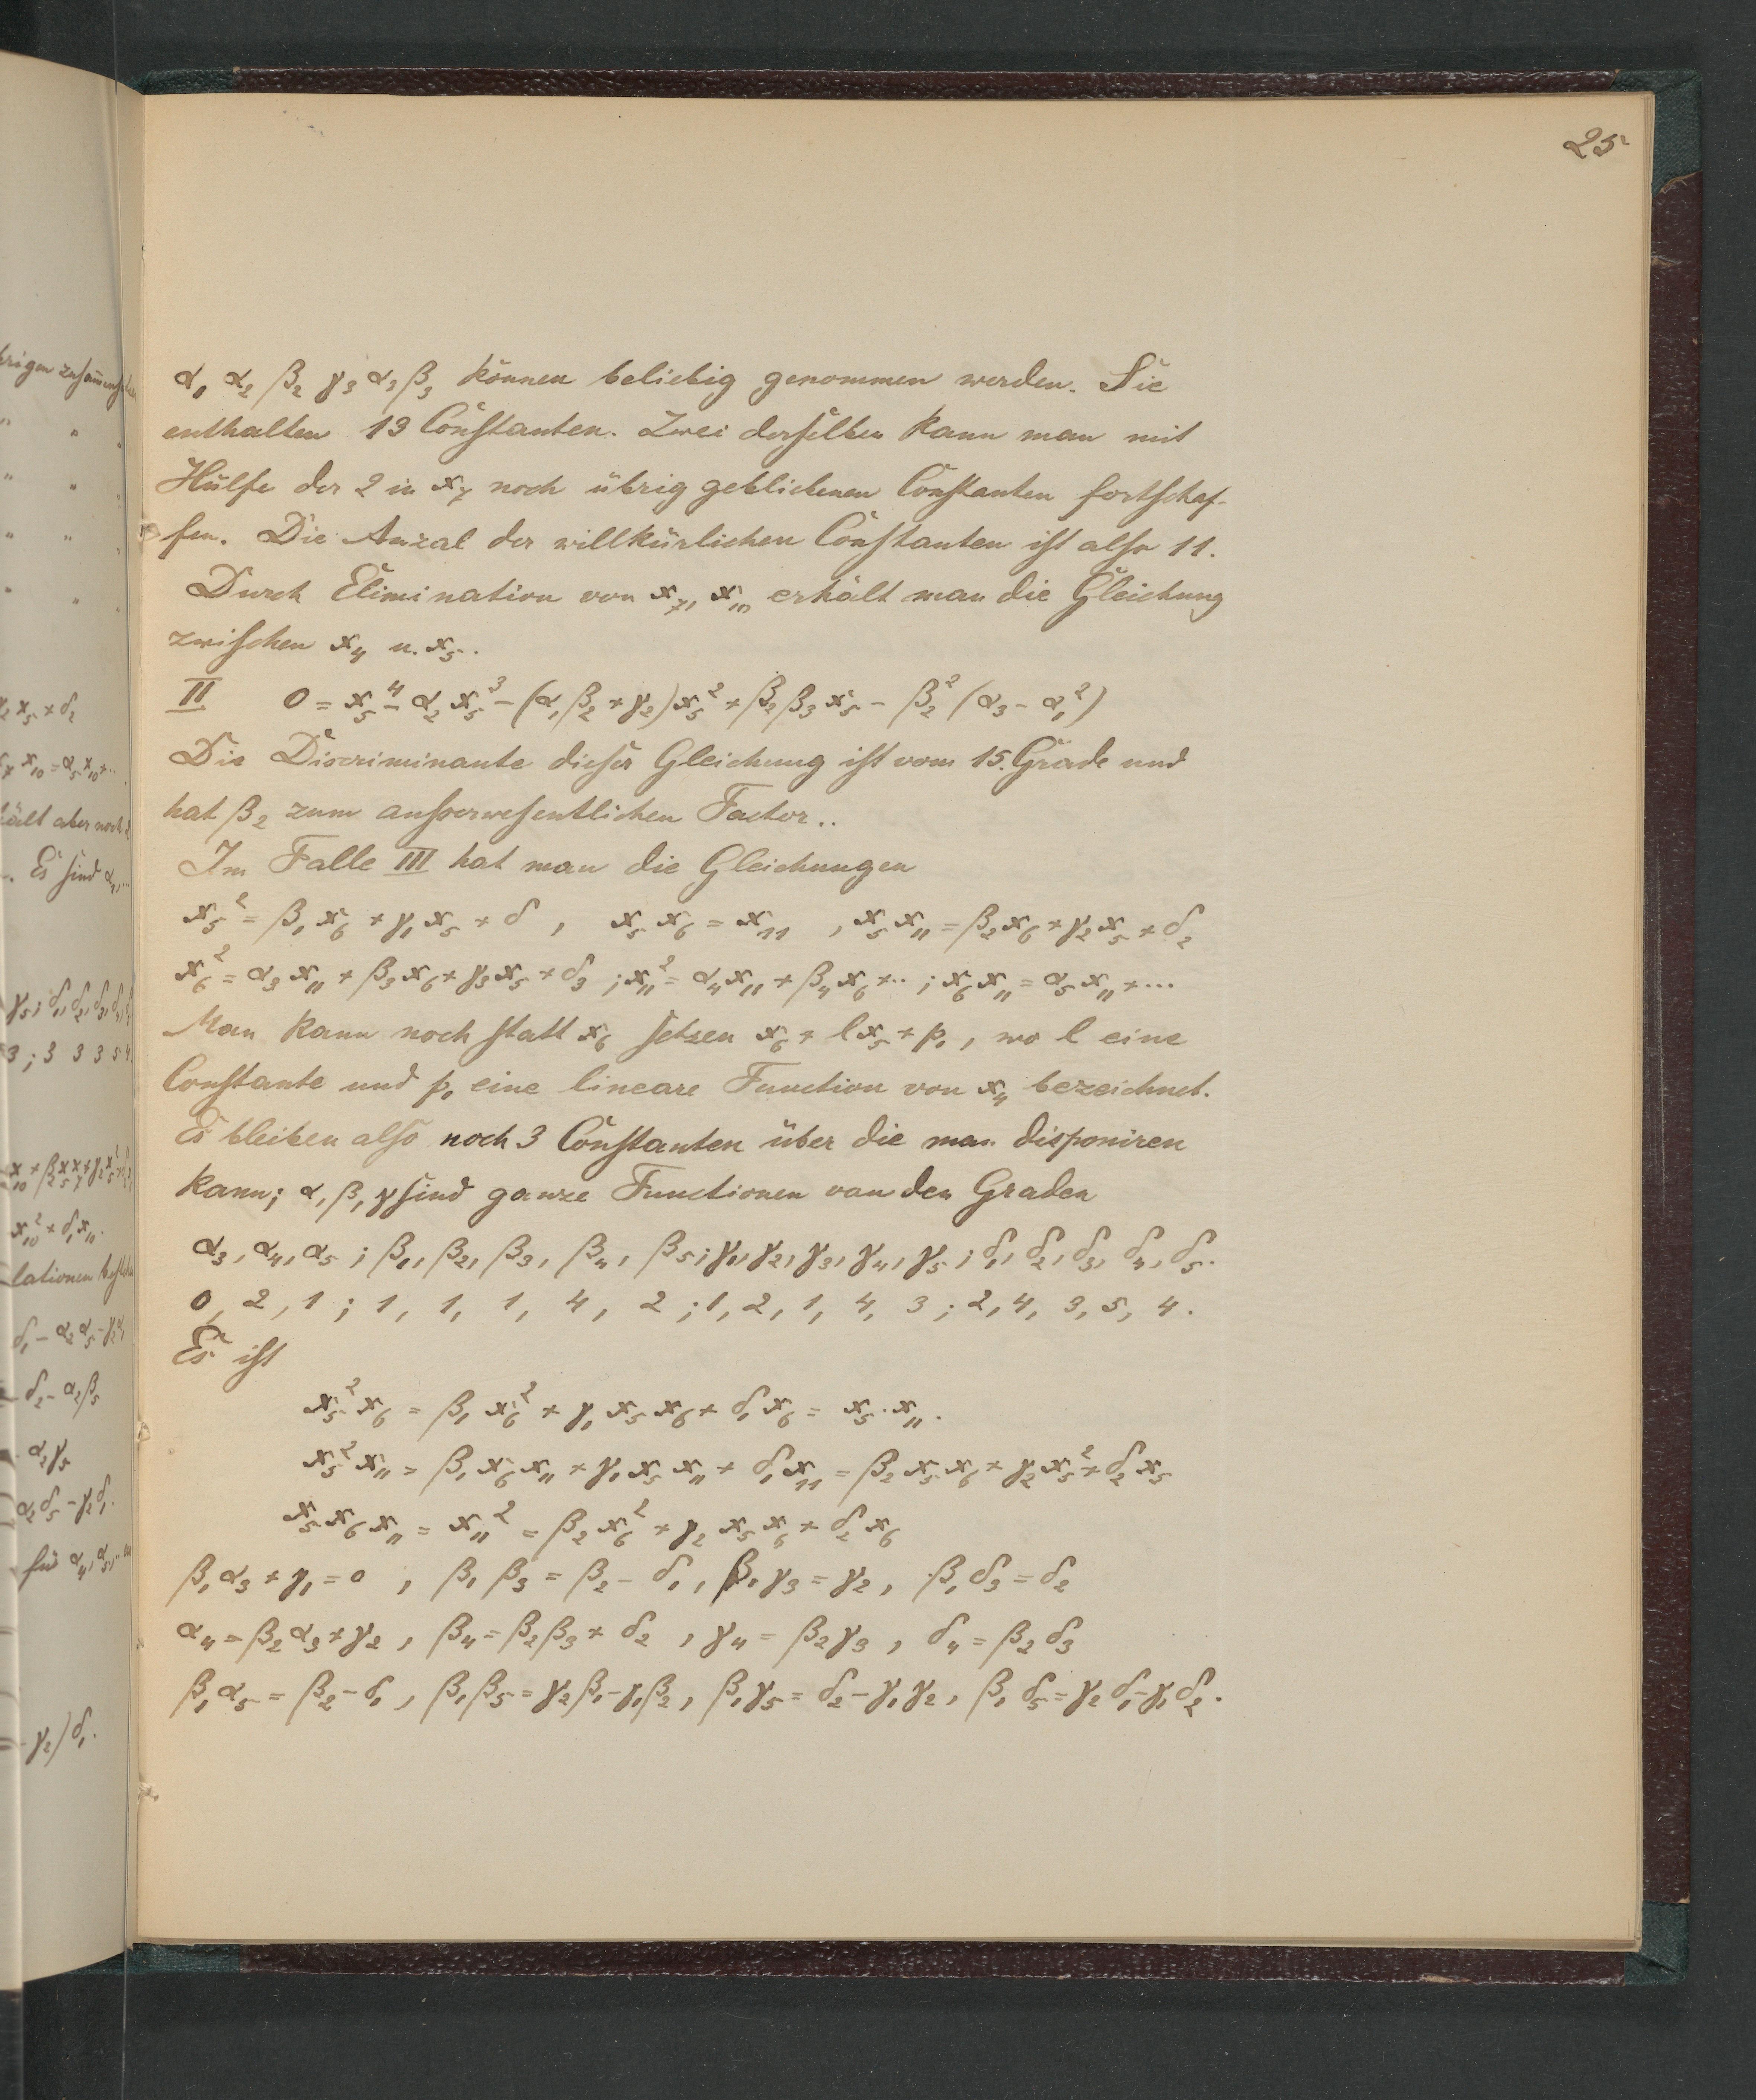 25
α₁ α₂ β₂ γ₃ α₃ β₃ können beliebig genommen werden. Sie
enthalten 13 Constanten. Zwei derselben kann man mit
Hülfe der 2 in x₇ noch übrig gebliebenen Constanten fortschaf-
fen. Die Anzal der willkürlichen Constanten ist also 11.
Durch Elimination von x₇, x₁₀ erhält man die Gleichung
zwischen x₄ u. x₅.
II 0 = x₅⁴ - α₂ x₅³ - (α₁β₂ + γ₂)x₅² + β₂β₃x₅ - β₂² (α₃ - α₁²)
Die Discriminante dieser Gleichung ist vom 15. Grade und
hat β₂ zum ausserwesentlichen Factor..
Im Falle III hat man die Gleichungen
x₅² = β₁x₆ + γ₁x₅ + δ , x₅x₆ = x₁₁ , x₅x₁₁ = β₂x₆ + γ₂x₅ + δ₂
x₆² = α₃x₁₁ + β₃x₆ + γ₃x₅ + δ₃ ; x₁₁² = α₄x₁₁ + β₄x₆ + ·· ; x₆x₁₁ = α₅x₁₁ + ···
Man kann noch statt x₆ setzen x₆ + lx₅ + p₁, wo l eine
Constante und p₁ eine lineare Function von x₄ bezeichnet.
Es bleiben also noch 3 Constanten über die man disponiren
kann; α, β, γ sind ganze Functionen von den Graden
α₃, α₄, α₅ ; β₁, β₂, β₃, β₄, β₅ ; γ₁, γ₂, γ₃, γ₄, γ₅ ; δ₁, δ₂, δ₃, δ₄, δ₅.
0, 2, 1 ; 1, 1, 1, 4, 2 ; 1, 2, 1, 4, 3 ; 2, 4, 3, 5, 4.
Es ist
x₅²x₆ = β₁x₆² + γ₁x₅x₆ + δ₁x₆ = x₅·x₁₁.
x₅²x₁₁ = β₁x₆x₁₁ + γ₁x₅x₁₁ + δ₁x₁₁ = β₂x₅x₆ + γ₂x₅² + δ₂x₅
x₅x₆x₁₁ = x₁₁² = β₂x₆² + γ₂x₅x₆ + δ₂x₆
β₁α₃ + γ₁ = 0 , β₁β₃ = β₂ - δ₁ , β₁γ₃ = γ₂ , β₁δ₃ = δ₂
α₄ = β₂α₃ + γ₂ , β₄ = β₂β₃ + δ₂ , γ₄ = β₂γ₃ , δ₄ = β₂δ₃
β₁α₅ = β₂ - δ₁ , β₁β₅ = γ₂β₁ - γ₁β₂ , β₁γ₅ = δ₂ - γ₁γ₂ , β₁δ₅ = γ₂δ₁ - γ₁δ₂.